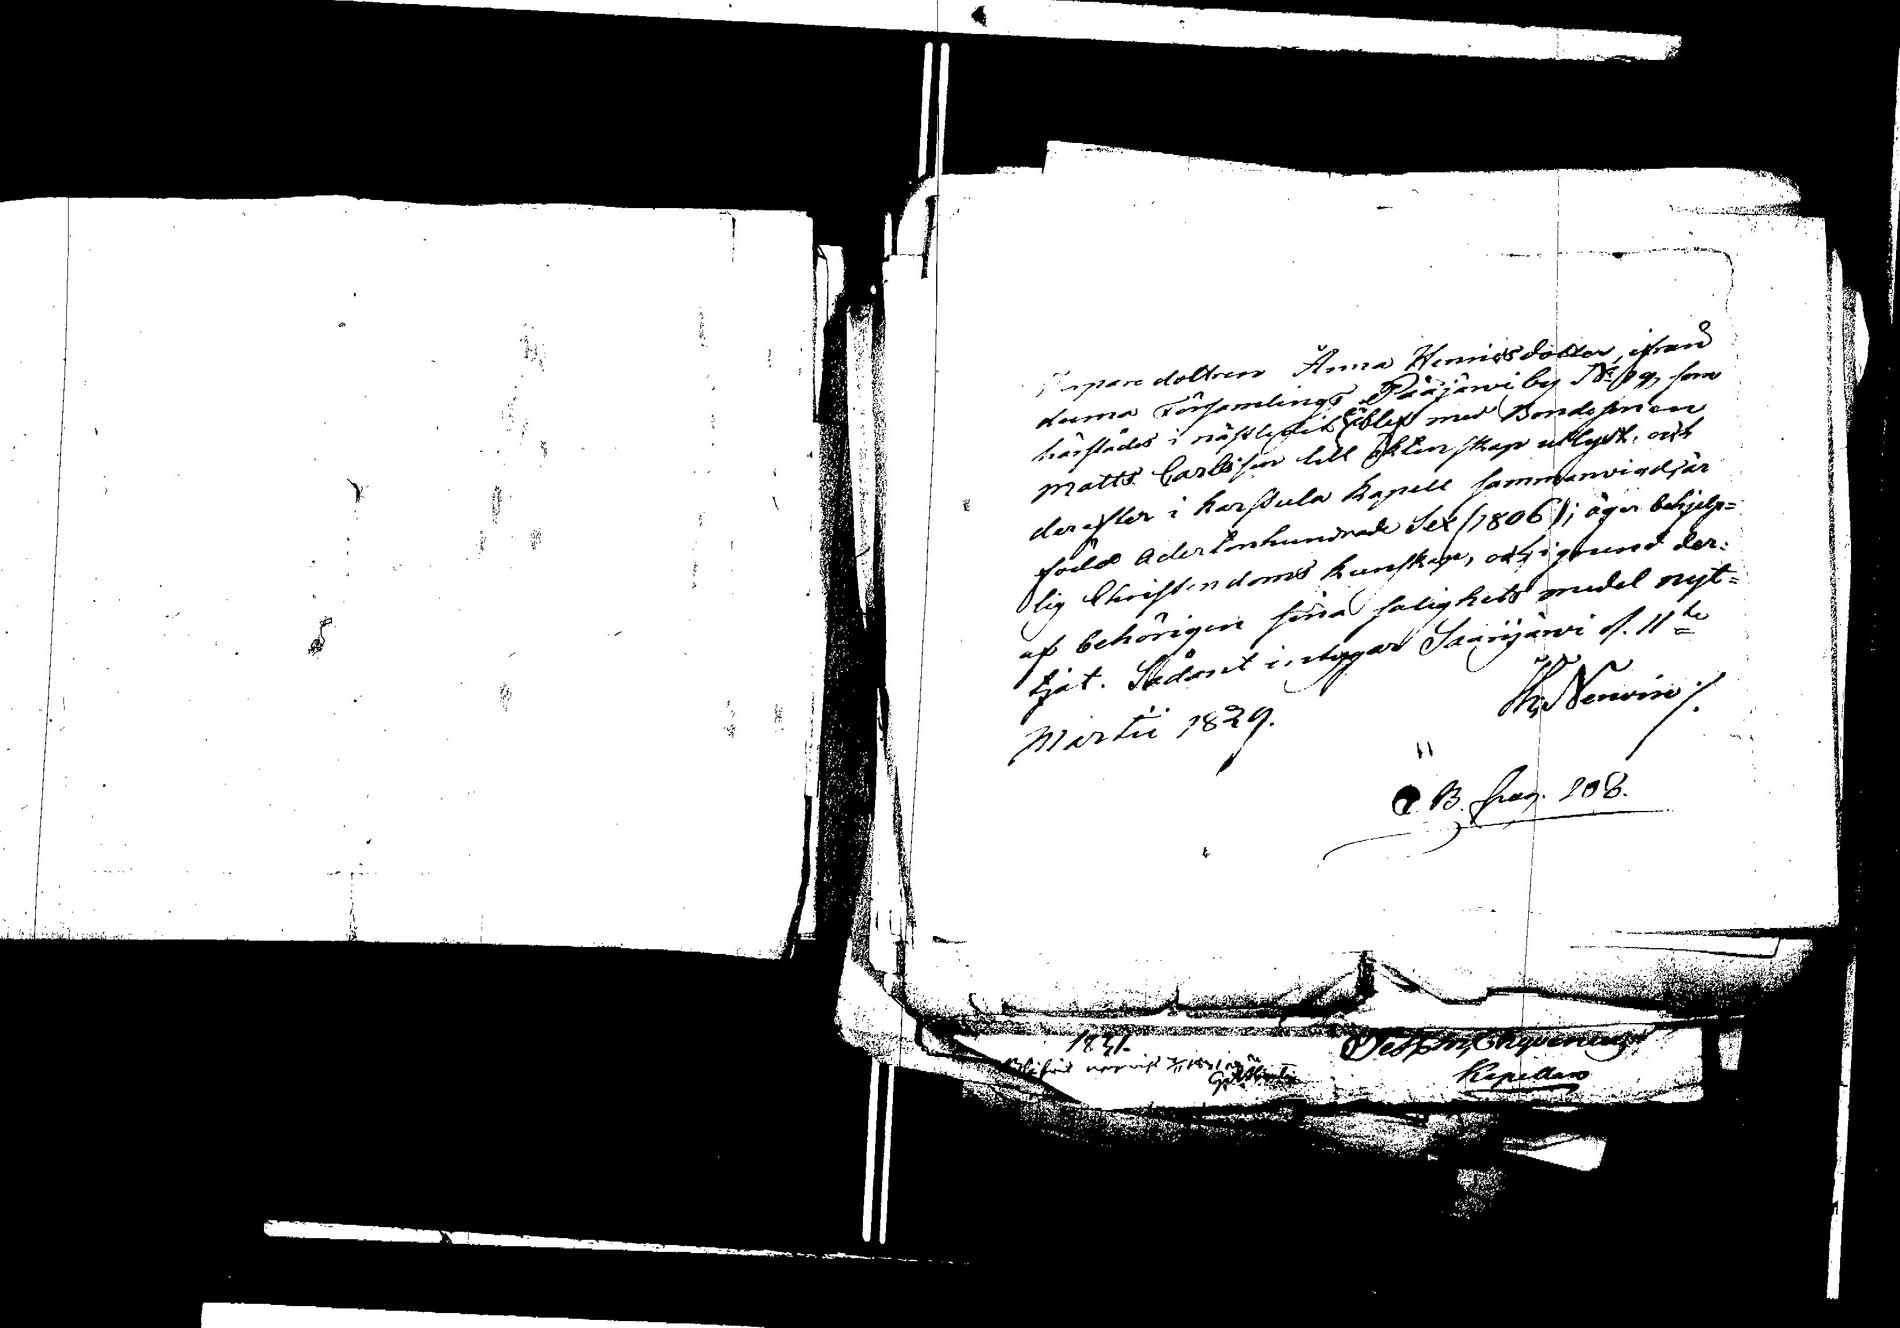 dottren Anna Henricsdotter, ifrån
denna Församlings Pääjärvi by N:o 19, som
härstädes i nästledit med Bondesonen
Matts Carlsson till Äktenskap utlyst, och
derefter i Karstula Kapell sammanvigd, är
född Adertonhundrade Sex (1806); äger behjelp=
lig Christendoms kunskap, och i grund der=
af behörigen sina salighets medel nyt=
tjat. Sådant intygar Saarijärvi d. 11te
Martii 1829.
B. pag. 108.
1831.
Kapellan